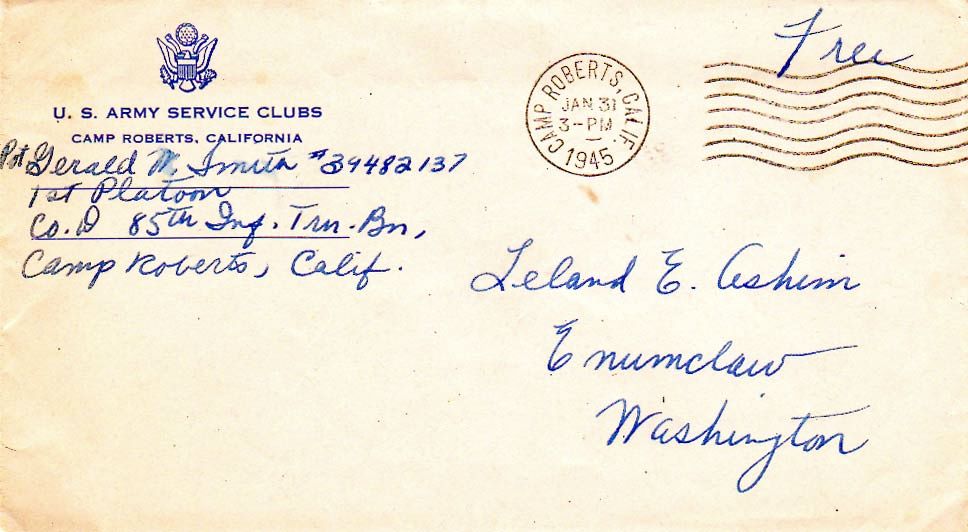 Free
U. S. ARMY SERVICE CLUBS
CAMP ROBERTS, CALIFORNIA
CAMP ROBERTS, CALIF.
JAN 31
3-PM
1945
Pvt Gerald M. Smith #39482137
1st Platoon
Co. D 85th Inf. Trn. Bn,
Camp Roberts, Calif.
Leland E. Ashim
Enumclaw
Washington